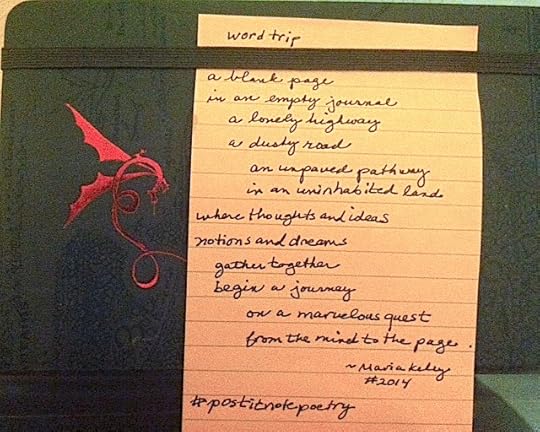 word trip
a blank page
in an empty journal
a lonely highway
a dusty road
an unpaved pathway
in an uninhabited land
where thoughts and ideas
notions and dreams
gather together
begin a journey
on a marvelous quest
from the mind to the page.
~ Maria Kelly
#2014
#postitnotepoetry